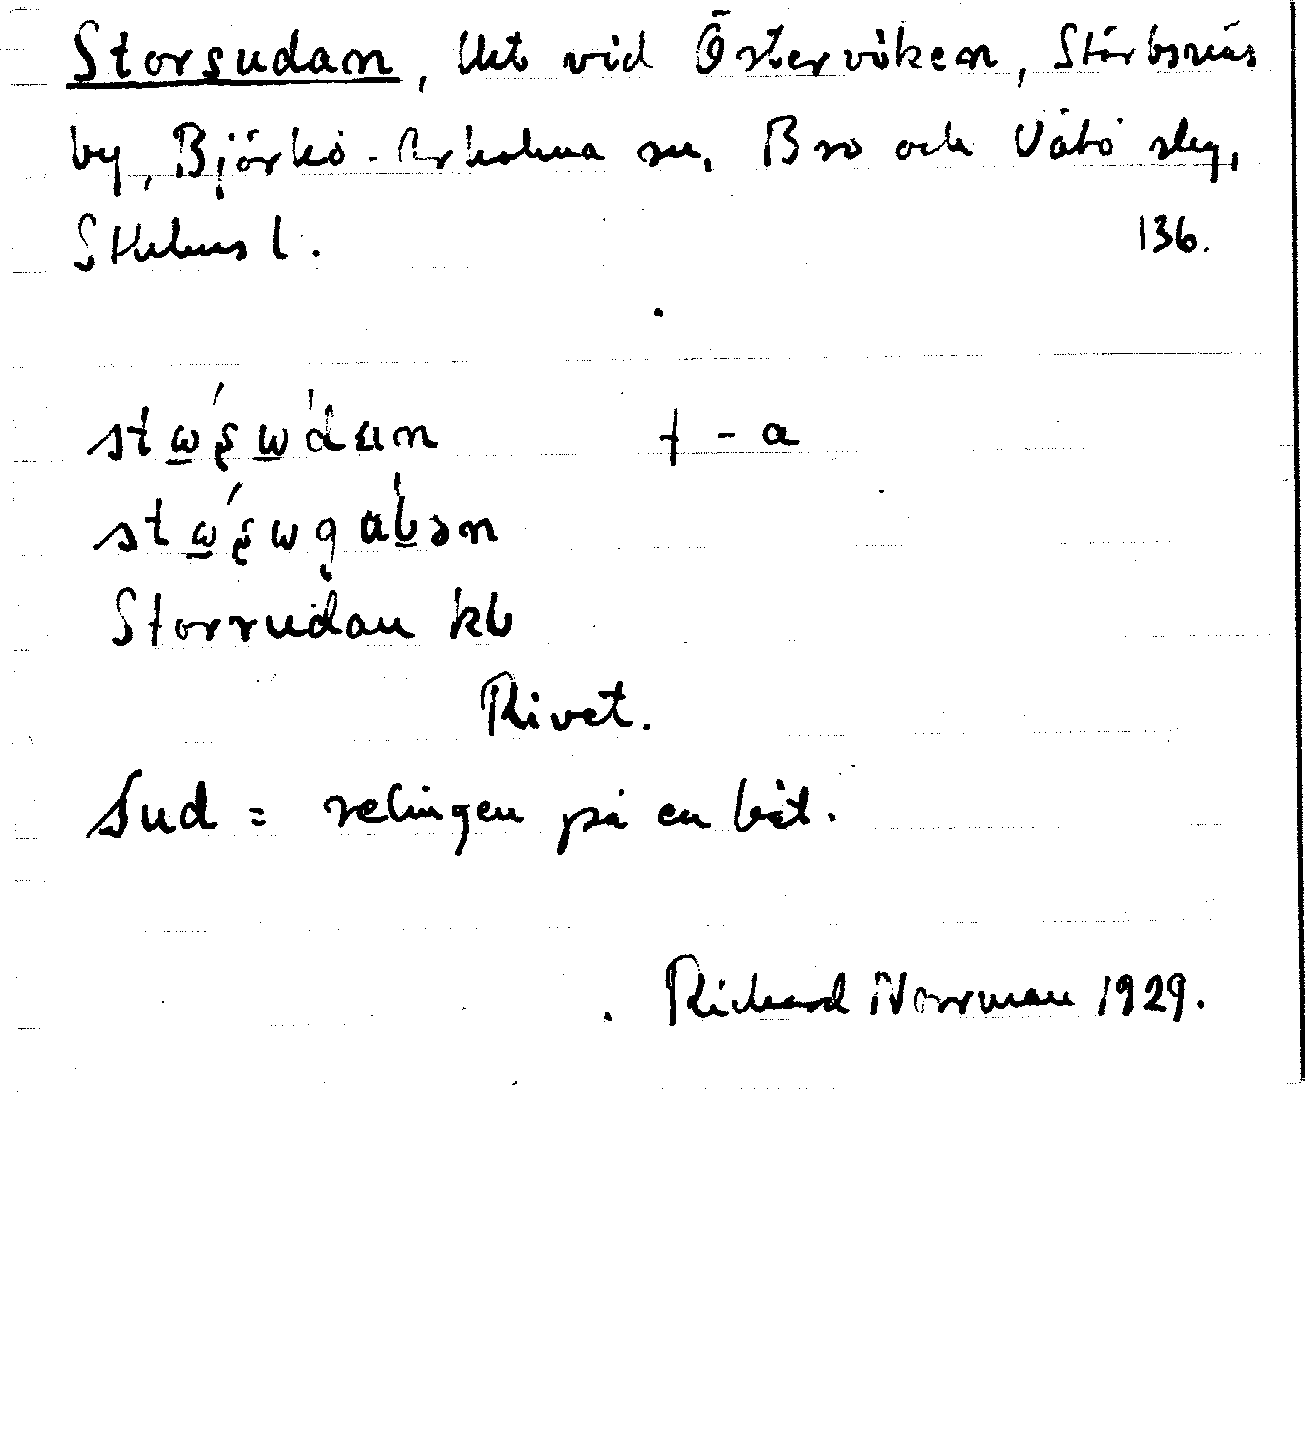 Storsudan, Udt vid Österviken, Storbyns
by, Björkö-Arholma sn, Bro och Vätö slg,
Sthlms l. 136.
stώ̲ʂω̲dan f -a
stώ̲ʂωgabən
Storrudan kb
Rivet.
Sud = relingen på en båt.
Richard Norrman 1929.